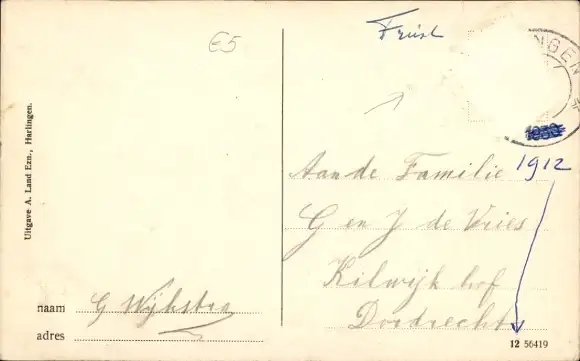 Friesl
€5
NGEN
1912
Uitgave A. Land Ezn., Harlingen.
Aan de Familie
G en J de Vries
Kilwijk hof
Dordrecht
naam G Wijkstra
adres
12 56419